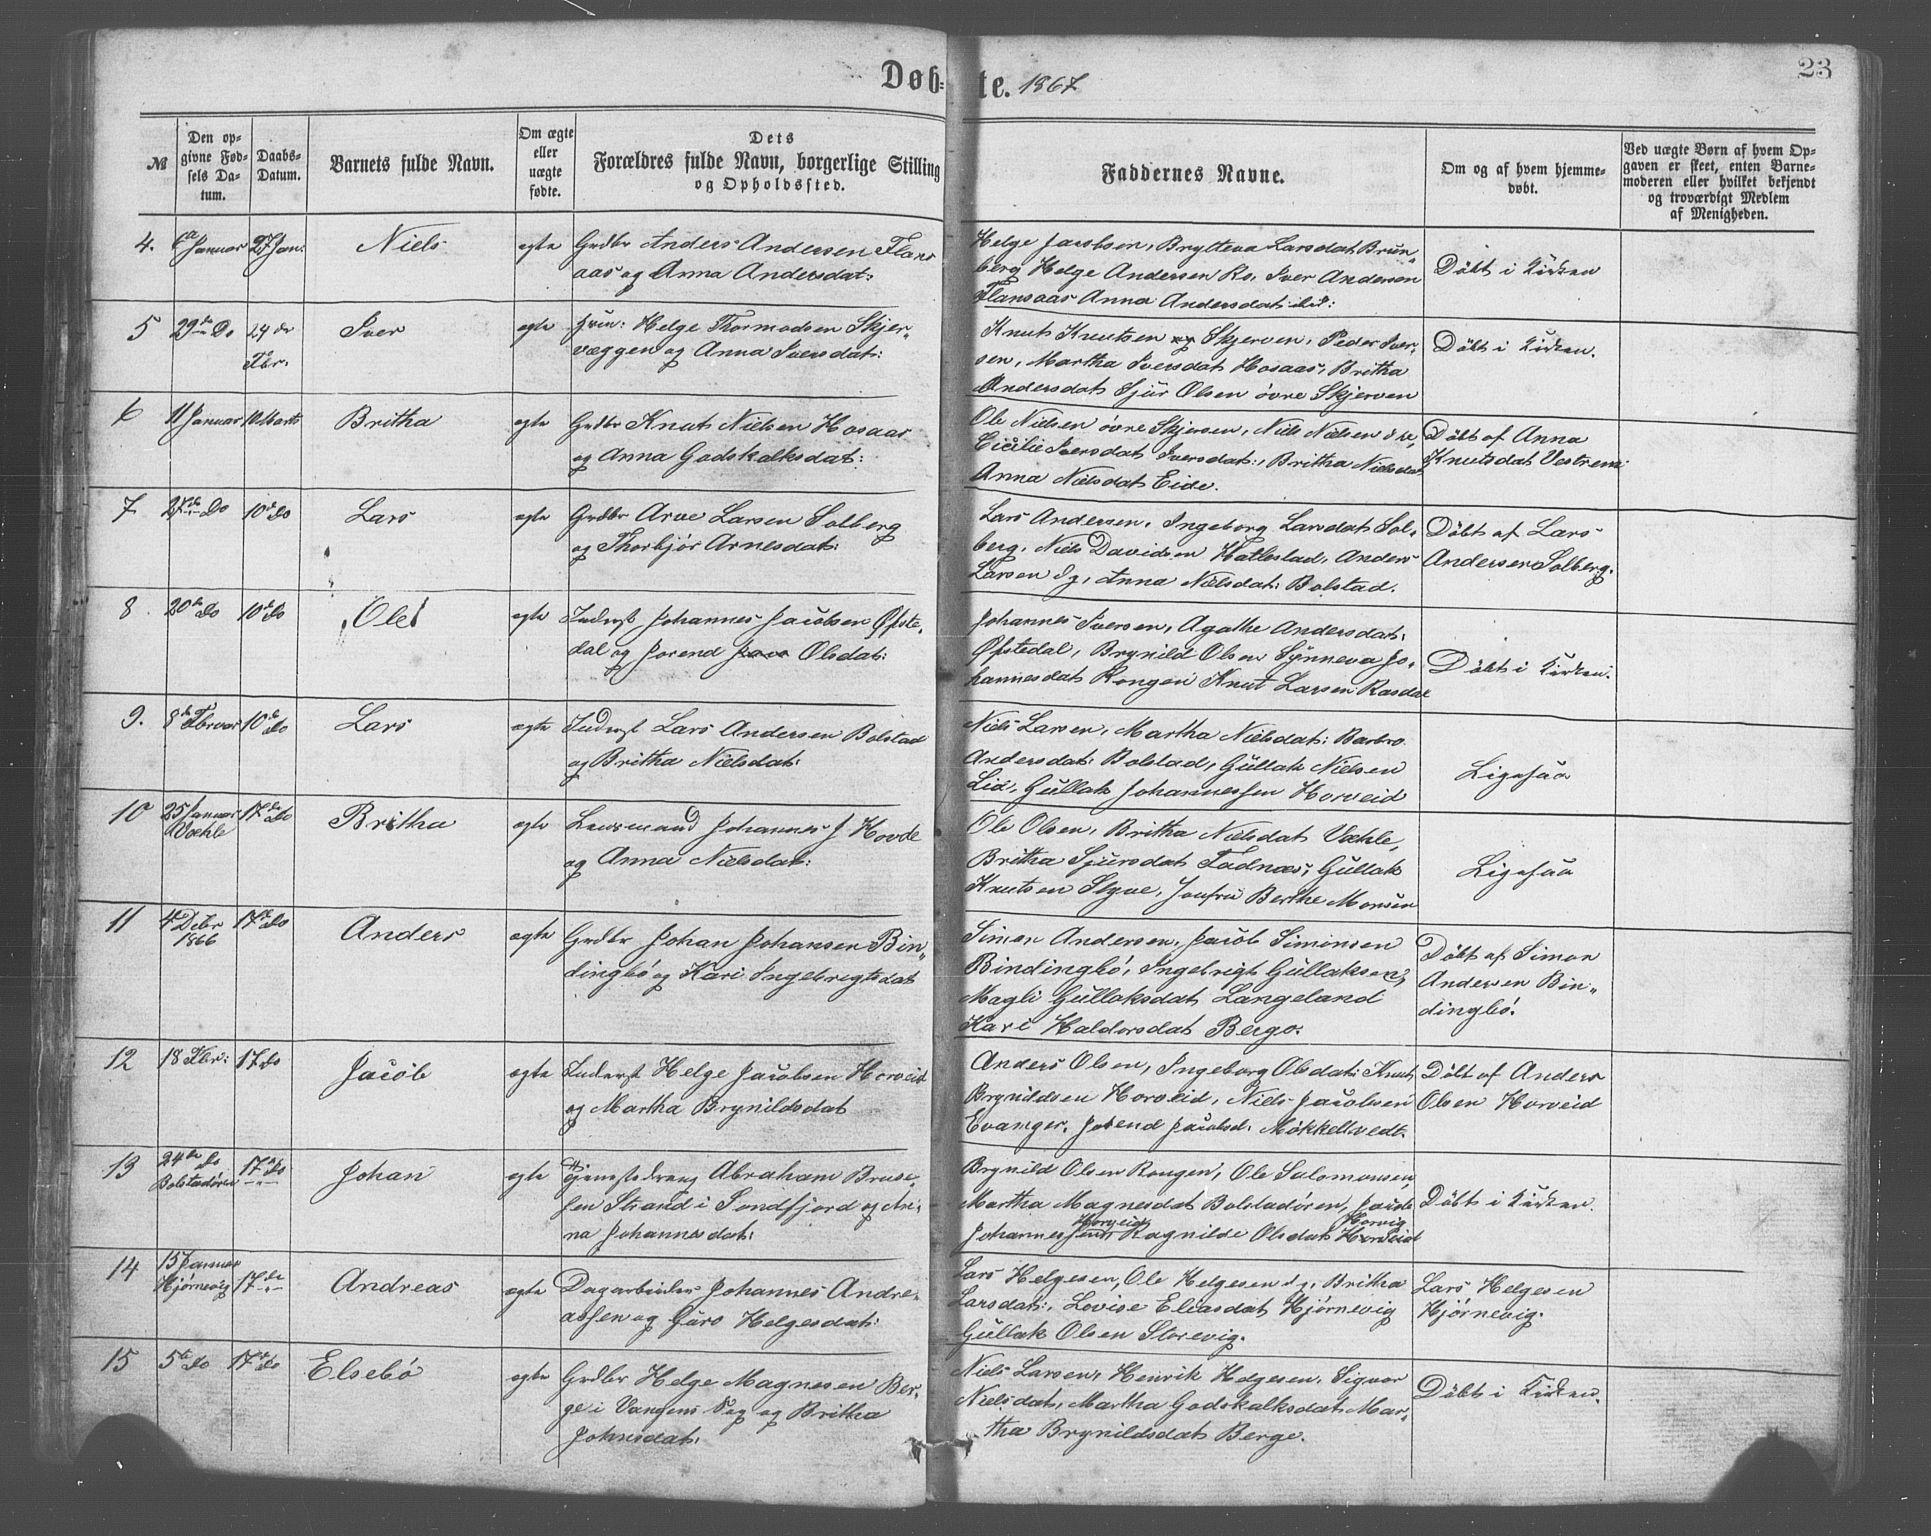 Døb= te. 1867
23
№
Den op=
givne Fød=
sels Da=
tum.
Daabs=
Datum.
Barnets fulde Navn.
Om ægte
eller
uægte
fødte.
Dets
Forældres fulde Navn, borgerlige Stilling
og Opholdssted.
Faddernes Navne.
Om og af hvem hjemme=
døbt.
Ved uægte Børn af hvem Op=
gaven er skeet, enten Barne=
moderen eller hvilket bekjendt
og troværdigt Medlem
af Menigheden.
4. 6te Januar 27 Jan: Niels egte Grdbr Anders Andersen Flans
aas og Anna Andersdat:
Helge Jacobsen, Brytteva Larsdat Brun„
berg Helge Andersen Ro, Iver Andersen
Flansaas Anna Andersdat: ibd:
Döbt i Kirken
5 29de Do 24de
Fbr.
Iver egte Helge Thormodsen Skjer„
væggen og Anna Iversdat:
Knut Knutsen Skjerven, Peder Iver„
sen, Martha Iversdat Hosaas, Britha
Andersdat Sjur Olsen övre Skjerven
Döbt i Kirken.
6 11 Januar 10 Marts Britha egte Grdbr Knut Nielsen Hosaas
og Anna Godskalksdat:
Ole Nielsen övre Skjerven, Niels Nielsen
Cicilie Iversdat Iversdat:, Britha Nielsdat
Anna Nielsdat Eide.
Döbt af Anna
Knutsdat Vestrem
7 27de Do 10de Do Lars egte Grdbr Arve Larsen Solberg
og Thorbjör Arnesdat:
Lars Andersen, Ingeborg Larsdat Sol„
berg, Niels Davidsen Hatlestad, Anders
Larsen dg, Anna Nielsdat: Bolstad.
Döbt af Lars
Andersen Solberg.
8. 20de Do 10de Do Ole egte Inderst Johannes Jacobsen Øfste„
dal og Jorend Olsdat:
Johannes Iversen, Agathe Andersdat:
Øfstedal, Brynild Olsen Synneva Jo„
hannesdat Rongen Knut Larsen Rasdal
Döbt i Kirken.
9. 8de Febrvar 10de Do Lars egte Inderst Lars Andersen Bolstad
og Britha Nielsdat:
Niels Larsen, Martha Nielsdat: Barbro
Andersdat: Bolstad, Güllak Nielsen
Lid, Güllak Johannessen Horveid
Ligesaa
10 25 Januar
Væhle
17de Do Britha egte Lensmand Johannes J Hovde
og Anna Nielsdat:
Ole Olsen, Britha Nielsdat Væhle,
Britha Sjursdat Fadnæs, Güllak
Knutsen Styve, Jomfru Berthe Monsen
Ligesaa
11 4de Debr
1866
17de Do Anders egte Grdbr Johan Johansen Bin„
dingbö og Kari Ingebregtsdat
Simon Andersen, Jacob Simonsen
Bindingbö, Ingebrigt Güllaksen,
Magli Güllaksdat Langeland
Kari Haldorsdat Bergo.
Döbt af Simon
Andersen Bin„
dingbö.
12 18 Fbr: 17 do Jacob egte Inderst Helge Jacobsen Horveid
og Martha Brynildsdat
Anders Olsen, Ingeborg Olsdat: Knut
Brynildsen Horveid, Niels Jacobsen
Evanger, Jorend Jacobsd: Mökkeltvedt.
Döbt af Anders
Olsen Horveid
13 24de Do
Bolstadören
17de Do Johan egte Tjenestedreng Abraham Bruse„
sen Strand i Söndfjord og An„
na Johannesdat:
Brynild Olsen Rongen, Ole Salomonsen,
Martha Magnesdat Bolstadören, Jacob
Johannessen Horveid Ragnilde Olsdat Horvig
Döbt i Kirken.
14 15 Januar
Hjørnevig
17de Andreas egte Dagarbeider Johannes Andre„
assen og Guro Helgesdat:
Lars Helgesen, Ole Helgesen dg, Britha
Larsdat:, Lovise Eliasdat Hjørnevig
Güllak Olsen Storevig.
Lars Helgesen
Hjørnevig.
15 5te Do 17de Do Elsebö egte Grdbr Helge Magnesen Ber„
ge i Vangens Sog og Britha
Johnsdat:
Niels Larsen, Henrik Helgesen, Sigvor
Nielsdat, Martha Godskalksdat Mar„
tha Brynildsdat Berge.
Döbt i Kirken.